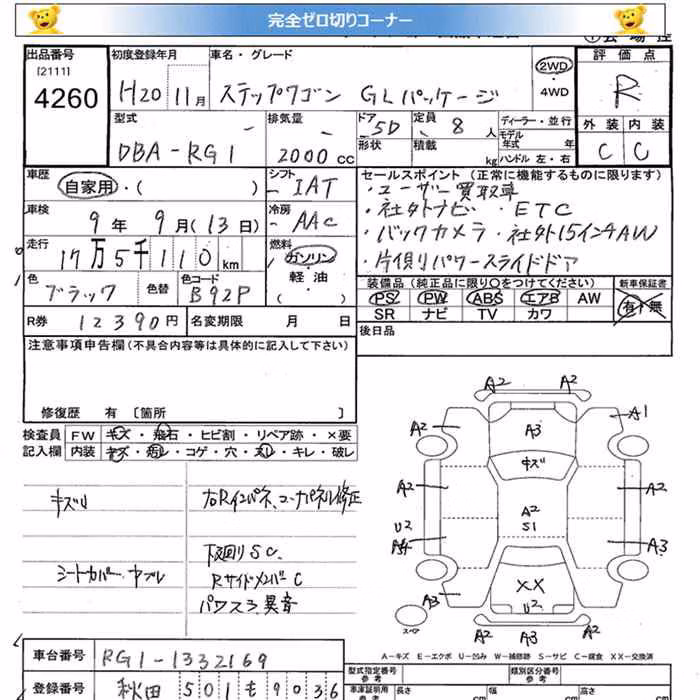 完全ゼロ切りコーナー
出品番号 [2111] 4260
初度登録年月 H20 11月
車名・グレード ステップワゴン GLパッケージ
2WD
4WD
評価点 R
外装 内装
C C
型式 DBA-RG1
排気量 2000 cc
ドア 5D 定員 8 人
形状 積載 kg
ディーラー・並行
モデル年式 年
ハンドル 左・右
車歴 自家用・( )
シフト IAT
セールスポイント(正常に機能するものに限ります)
・ユーザー買取車
・社外ナビ・ETC
・バックカメラ・社外15インチAW
・片側パワースライドドア
車検 9年 9月(13日)
冷房 AAC
走行 17万5千110km
燃料 ガソリン・軽・油 ( )
色 ブラック 色替
色コード B92P
装備品(純正品に限り○をつけてください) 新車保証書
PS PW ABS エアB AW 有・無
SR ナビ TV カワ
R券 12390円 名変期限 月 日
後日品
注意事項申告欄(不具合内容等は具体的に記入して下さい)
修復歴 有 〔箇所 〕
検査員 FW キズ・飛石・ヒビ割・リペア跡・×要
記入欄 内装 キズ・汚レ・コゲ・穴・スレ・キレ・破レ
キズ凹
右Rインパネ、コーナパネル修正
下回りSC
シートカバー・ヤブレ
RサイドメンバーC
パワステ異音
A2 A2
A2 A3 A1
キズ
A2 A2 A2
S1
U2
A4 A3
XX
A3 U2
スペア
A2 A3 A2
A-キズ E-エクボ U-凹み W-補修跡 S-サビ C-腐食 XX-交換済
車台番号 RG1-1332169
型式指定番号 参考 類別区分番号 参考
登録番号 秋田 501 も 9036
車庫証明用 参考 長さ cm 幅 cm 高さ cm